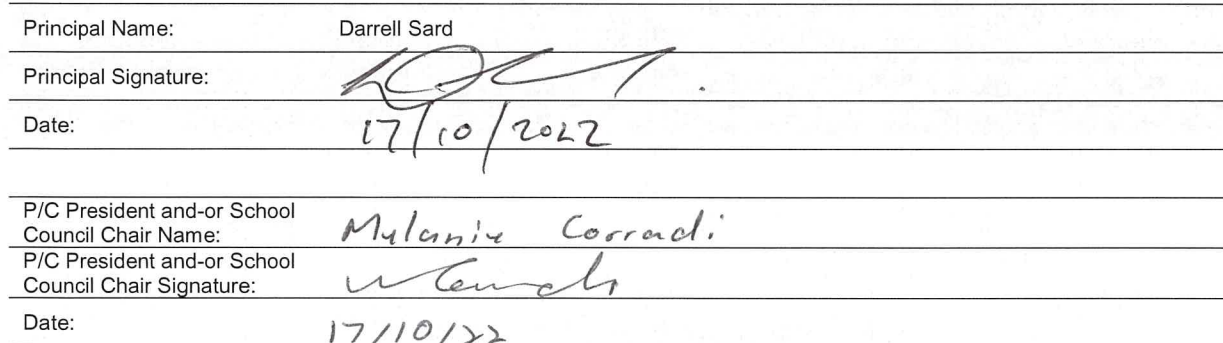 Principal Name: Darrell Sard
Principal Signature:
Date: 17/10/2022
P/C President and-or School
Council Chair Name: Melanie Corradi
P/C President and-or School
Council Chair Signature:
Date: 17/10/22